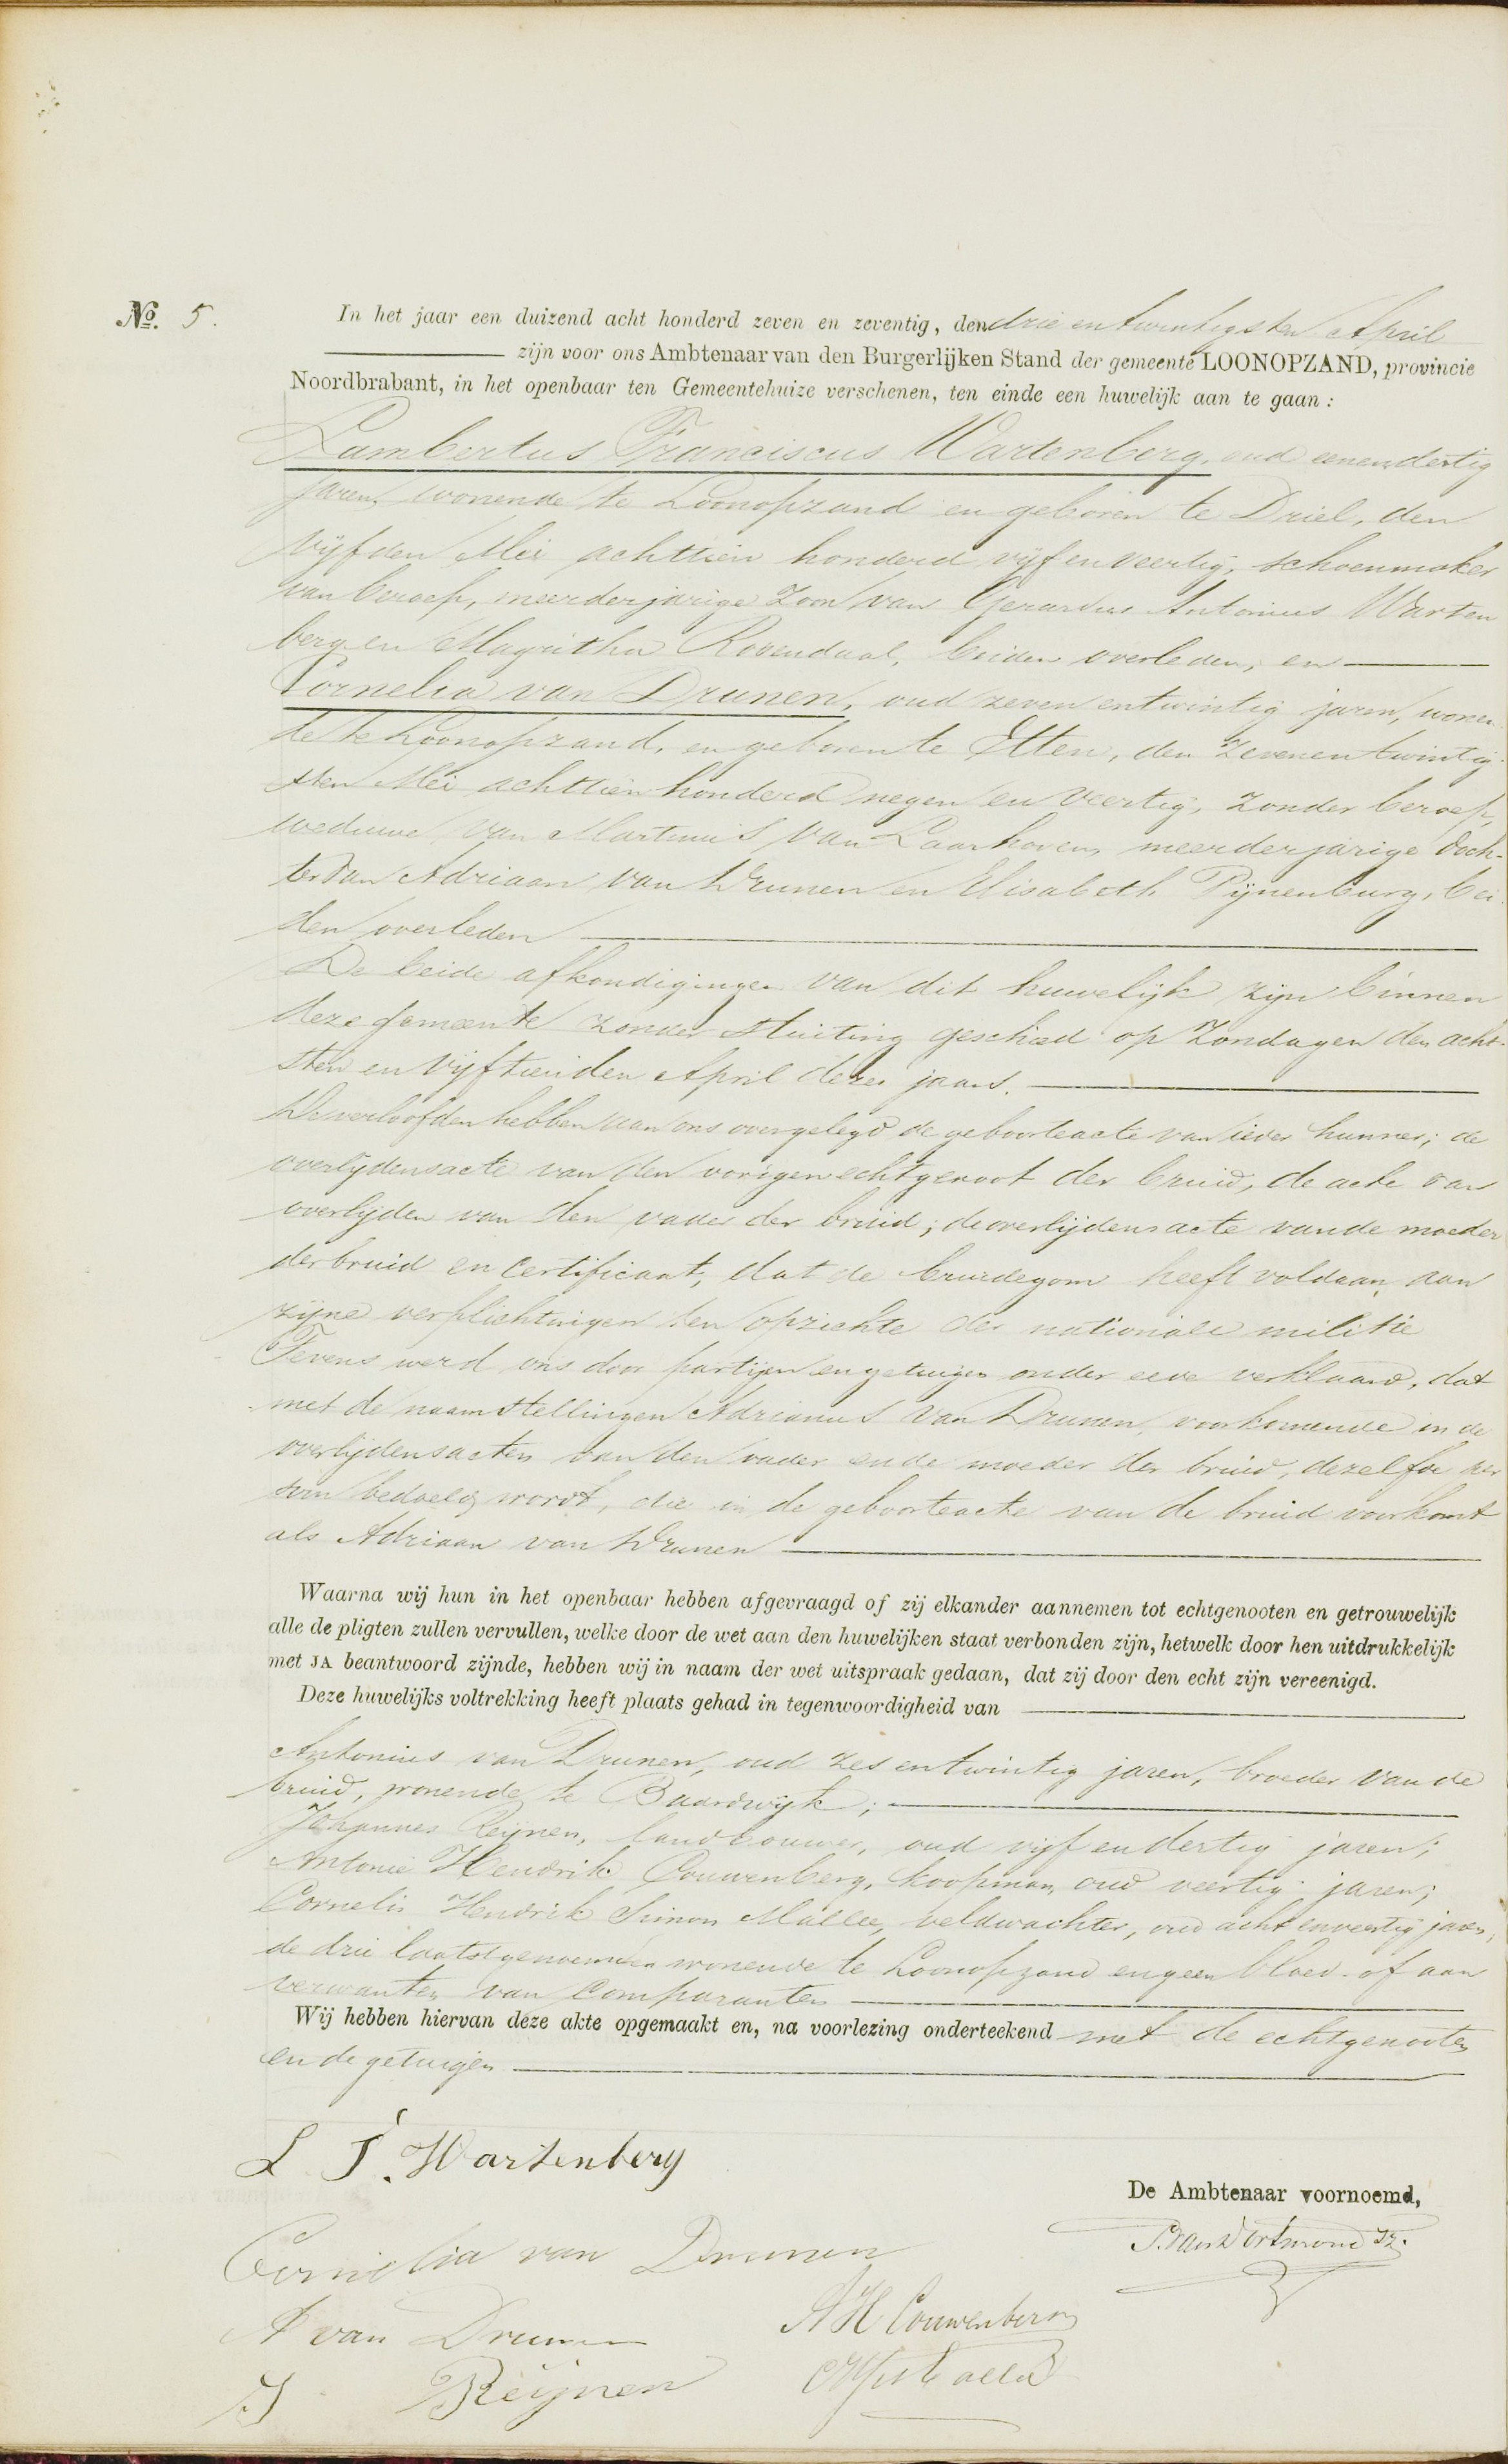 No. 5.
In het jaar een duizend acht honderd zeven en zeventig, den drie en twintigsten April
zijn voor ons Ambtenaar van den Burgerlijken Stand der gemeente LOONOPZAND, provincie
Noordbrabant, in het openbaar ten Gemeentehuize verschenen, ten einde een huwelijk aan te gaan:
Lambertus Franciscus Wartenberg, oud eenendertig
jaren, wonende te Loonopzand en geboren te Driel, den
vijfden Mei achttien honderd vijf en veertig, schoenmaker
van beroep, meerderjarige zoon van Gerardus Antonius Warten
berg en Magritha Rovendaal, beiden overleden, en
Cornelia van Drunen, oud zeven entwintig jaren, wonen
de te Loonopzand, en geboren te Etten, den zevenentwintig
sten Mei achttien honderd negen en veertig, zonder beroep,
weduwe van Martinus van Laarhoven, meerderjarige doch-
ter van Adriaan van Drunen en Elisabeth Pijnenburg, bei
den overleden
De beide afkondigingen van dit huwelijk zijn binnen
deze gemeente zonder stuiting geschied op Zondagen den acht-
sten en vijftienden April dezes jaars.
De verloofden hebben aan ons overgelegd de geboorteacte van ieder hunner; de
overlijdensacte van den vorigen echtgenoot der bruid, de acte van
overlijden van den vader der bruid; de overlijdensacte van de moeder
der bruid en certificaat, dat de bruidegom heeft voldaan aan
zijne verplichtingen ten opzichte der nationale militie
Tevens werd ons door partijen en getuigen onder eede verklaard, dat
met de naamstellingen Adrianus van Drunen, voorkomende in de
overlijdensacten van den vader en de moeder der bruid, dezelfde per
soon bedoeld wordt, die in de geboorteacte van de bruid voorkomt
als Adriaan van Drunen
Waarna wij hun in het openbaar hebben afgevraagd of zij elkander aannemen tot echtgenooten en getrouwelijk
alle de pligten zullen vervullen, welke door de wet aan den huwelijken staat verbonden zijn, hetwelk door hen uitdrukkelijk
met JA beantwoord zijnde, hebben wij in naam der wet uitspraak gedaan, dat zij door den echt zijn vereenigd.
Deze huwelijks voltrekking heeft plaats gehad in tegenwoordigheid van
Antonius van Drunen, oud zes en twintig jaren, broeder van de
bruid, wonende te Baardwijk;
Johannes Reijnen, landbouwer, oud vijf en dertig jaren;
Antonie Hendrik Couwenberg, koopman, oud veertig jaren;
Cornelis Hendrik Simon Mallee, veldwachter, oud acht enveertig jaren,
de drie laatstgenoemden wonende te Loonopzand en geen bloed- of aan
verwanten van Comparanten
Wij hebben hiervan deze akte opgemaakt en, na voorlezing onderteekend met de echtgenooten
en de getuigen
L F. Wartenberg
De Ambtenaar voornoemd,
Cornelia van Drunen
A van Drunen
A H Couwenberg
J Reijnen